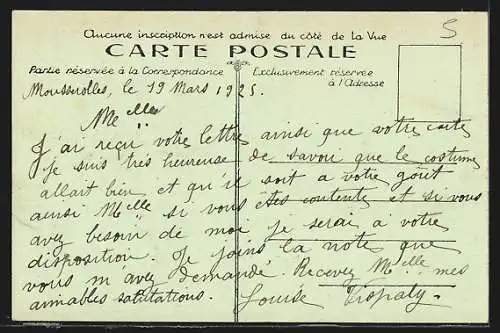 5
Aucune inscription n'est admise du côté de la Vue
CARTE POSTALE
Partie réservée à la Correspondance
Exclusivement réservée
à l'Adresse
Mousserolles, le 19 Mars 1925.
Melle
J'ai reçu votre lettre ainsi que votre carte
je suis très heureuse de savoir que le costume
allait bien et qu'il soit a votre goût
aussi Melle si vous êtes contente et si vous
avez besoin de moi je serai à votre
disposition. Je joins la note que
vous m'avez demandé. Recevez Melle mes
aimables salutations. Louise